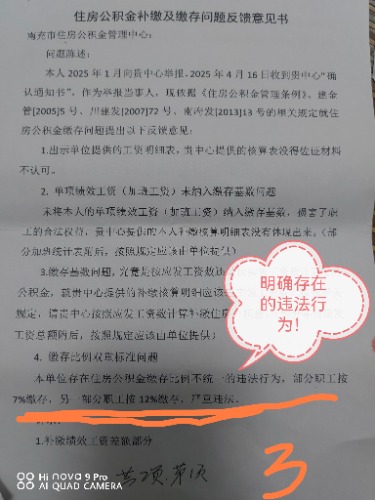 住房公积金补缴及缴存问题反馈意见书
南充市住房公积金管理中心：
问题陈述：
本人 2025 年 1 月向贵中心举报，2025 年 4 月 16 日收到贵中心“确
认通知书”。作为举报当事人，现依据《住房公积金管理条例》、建金
管[2005]5 号、川建发[2007]72 号、南府发[2013]13 号的相关规定就住
房公积金缴存问题提出以下反馈意见：
1.出示单位提供的工资明细表，贵中心提供的核算表没得佐证材料
不认可。
2. 单项绩效工资（加班工资）未纳入缴存基数问题
未将本人的单项绩效工资（加班工资）纳入缴存基数，损害了职
工的合法权益，贵中心提供的本人补缴核算明细表没有体现出来。（部
分加班统计表附后，按照规定应该由单位提供）
3.缴存基数问题，究竟是按应发工资数
公积金，就贵中心提供的补缴核算明细应该
规定，请贵中心按照应发工资数计算补缴住
工资总额附后，按照规定应该由单位提供）
明确存在
的违法行
为！
4. 缴存比例双重标准问题
本单位存在住房公积金缴存比例不统一的违法行为，部分职工按
7%缴存，另一部分职工按 12%缴存，严重违法。
1.补缴绩效工资差额部分
3
HI nova 9 Pro
AI QUAD CAMERA